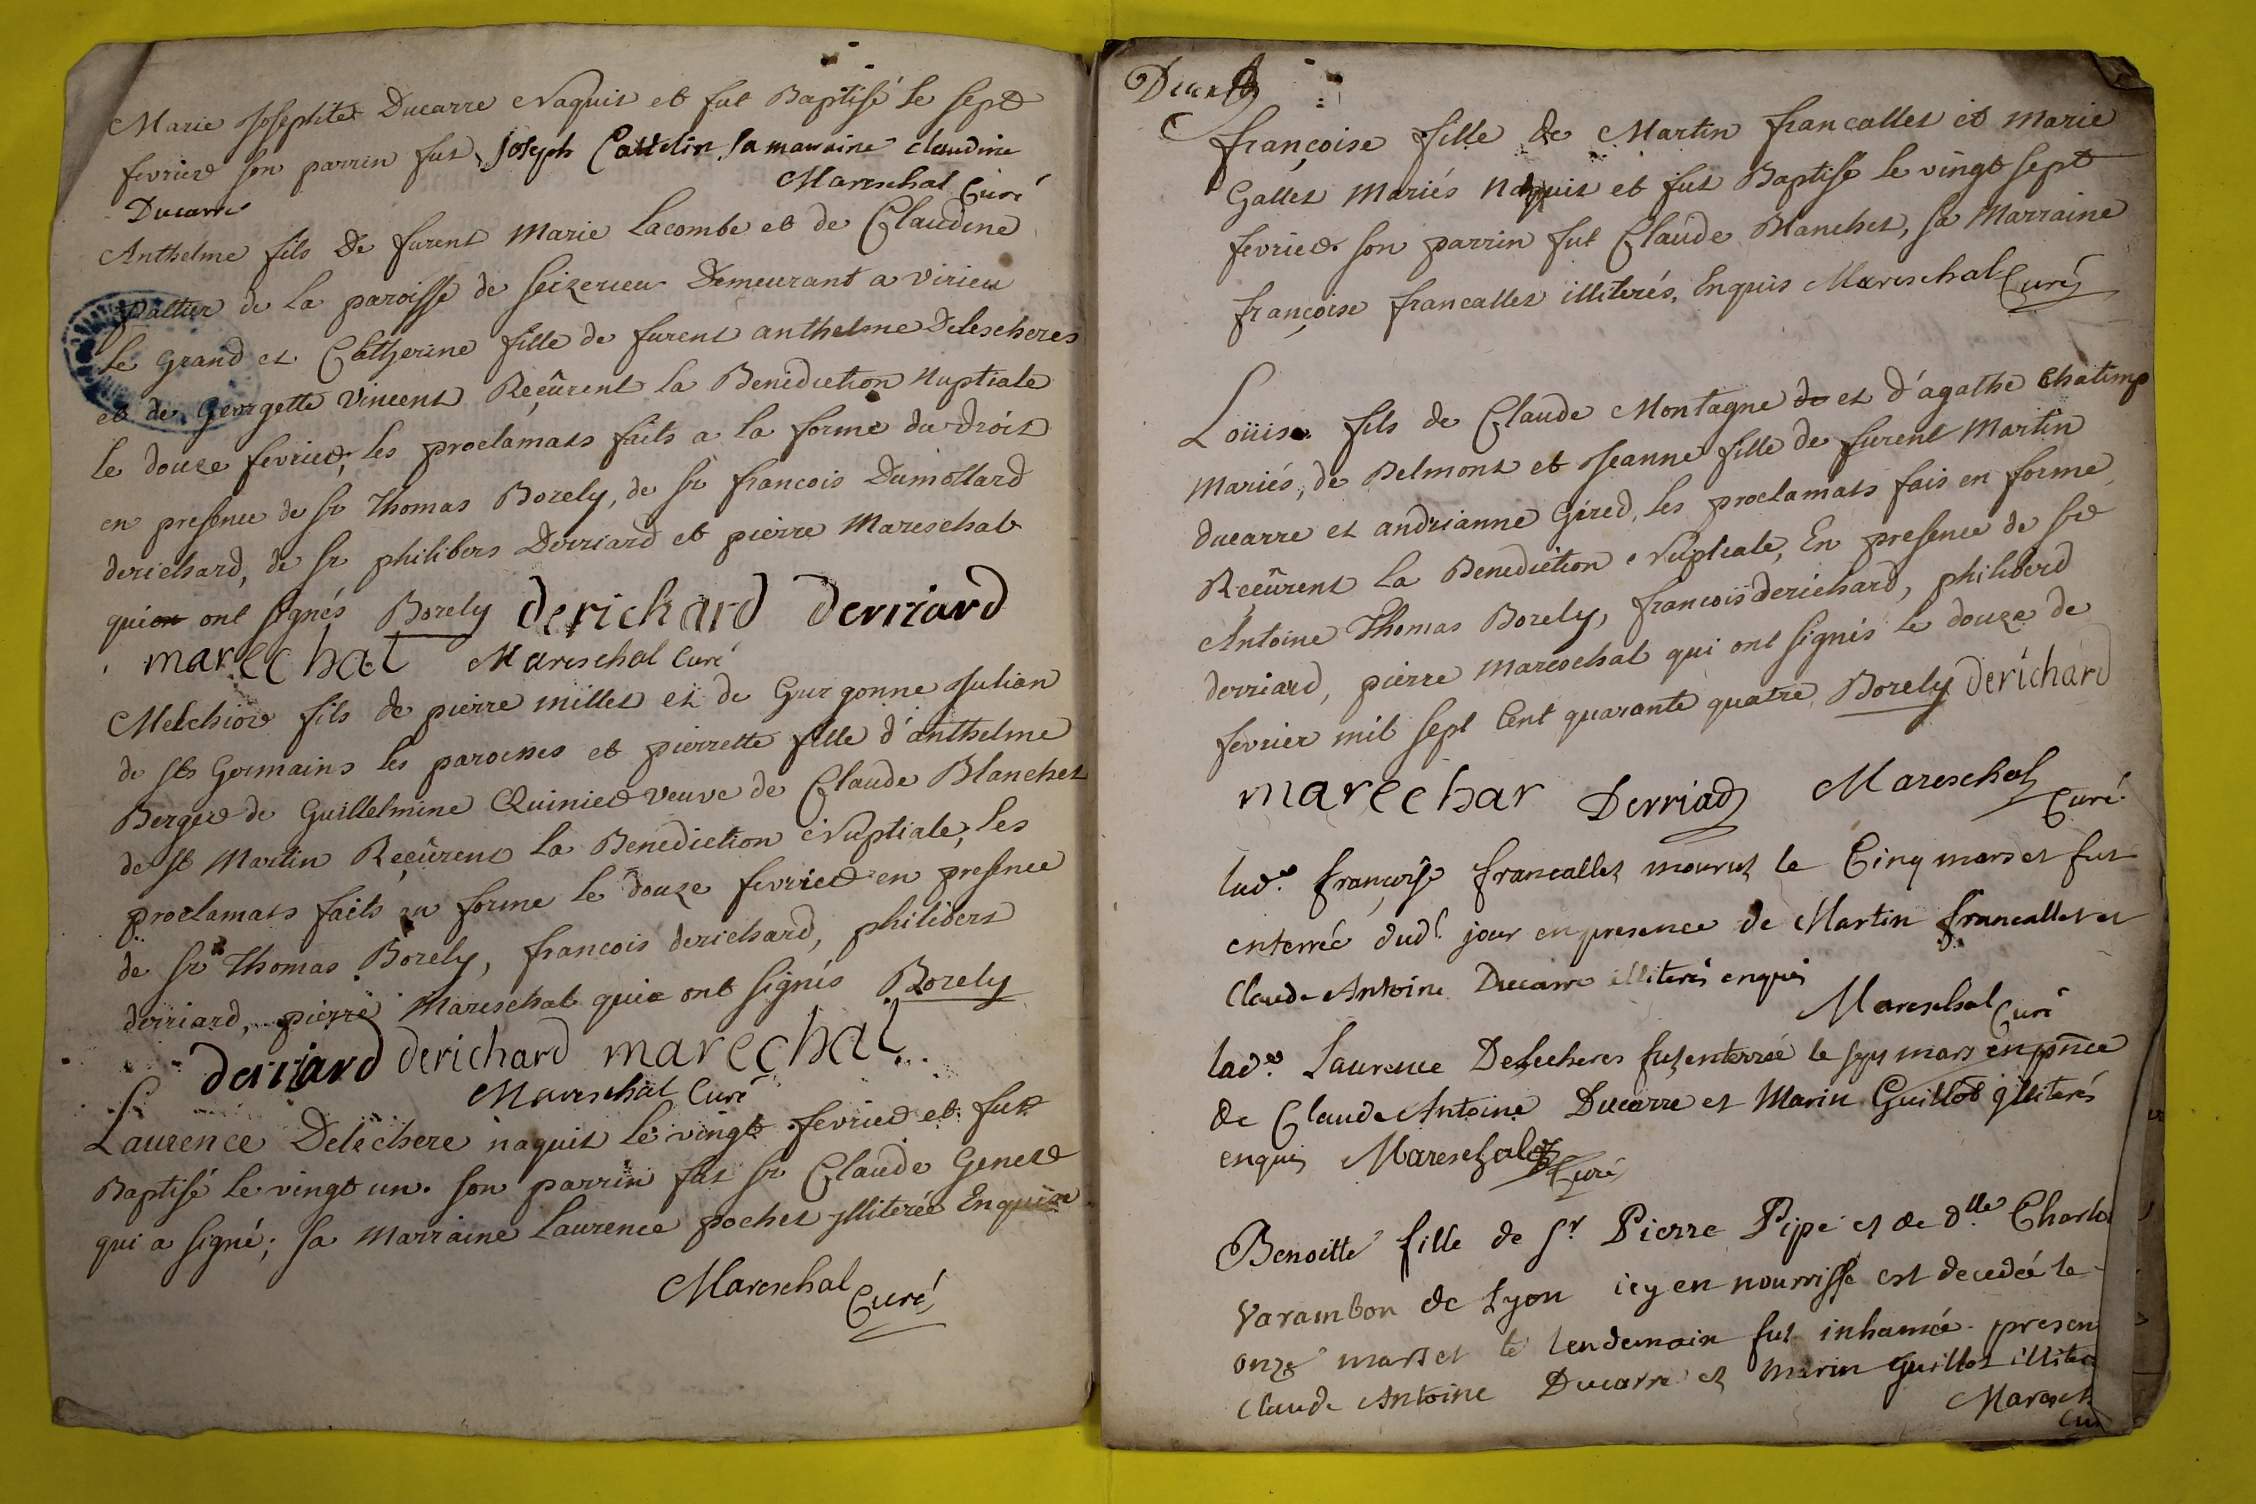 Marie Josephte Ducarre Naquit et fut Baptisé le sept
fevrier son parrin fut Joseph sa marraine claudine
Ducarre Mareschal Curé
Anthelme fils De furent Marie Lacombe et de Claudine
paltier de la paroisse de Seizerieu Demeurant a virieu
le Grand et Catherine fille de furent anthelme Delescheres
et de Georgette Vincent Reçûrent la Benediction Nuptiale
le douze fevrier, les proclamats faits a la forme du droit
en presence de Sr Thomas Borely, de Sr francois Dumollard
derichard, de Sr philibert Derriard et pierre Mareschal
qui ont signés Borely derichard derriard
marechal Mareschal Curé
Melchior fils de pierre millet et de Gurgonne Julian
de sts Germains les paroines et pierrette fille d'anthelme
Berger de Guillelmine Quinier veuve de Claude Blanchet
de st Martin Reçûrent la Benediction Nuptiale, les
proclamats faits en forme le douze fevrier en presence
de Sr Thomas Borely, francois derichard, philibert
derriard, pierre Mareschal qui ont signés Borely
derriard derichard marechal
Mareschal Curé
Laurence Delechere naquit le vingt fevrier et fut
Baptisé le vingt un. son parrin fut Sr Claude Genet
qui a signé; sa Marraine Laurence pochet jlliterée Enquise
Mareschal Curé
françoise fille de Martin francallet et marie
Gallet Mariés Naquit et fut Baptisé le vingt sept
fevrier son parrin fut Claude Blanchet, sa Marraine
françoise francallet illiterés, Enquis Mareschal Curé
Loüis fils de Claude Montagne de et d'agathe Chatimp
Mariés, de Belmont et Jeanne fille de furent Martin
ducarre et andrianne Gired, les proclamats fais en forme
Reçûrent la Benediction Nuptiale, En presence de sr
Antoine Thomas Borely, francois derichard, philiberd
derriard, pierre mareschal qui ont signés le douze de
fevrier mil sept Cent quarante quatre Borely derichard
marechar Derriad Mareschal Curé
lad.e françoise francallet mourut le Cinq mars et fut
enterrée dud.t jour en presence de Martin francallet et
Claude Antoine Ducarre illiterés enquis
Mareschal Curé
lade Laurence Delecheres fut enterrée le sept mars en pnce
de Claude Antoine Ducarre et Marin Guillot jlliterés
enquis Mareschal Curé
Benoitte fille de Sr Pierre Pipe et de dlle Charlo
Varambon de Lyon icy en nourrisse est decedée le
onze mars et le lendemain fut inhumée presen
Claude Antoine Ducarre et Marin Guillot illite
Maresch
Cu